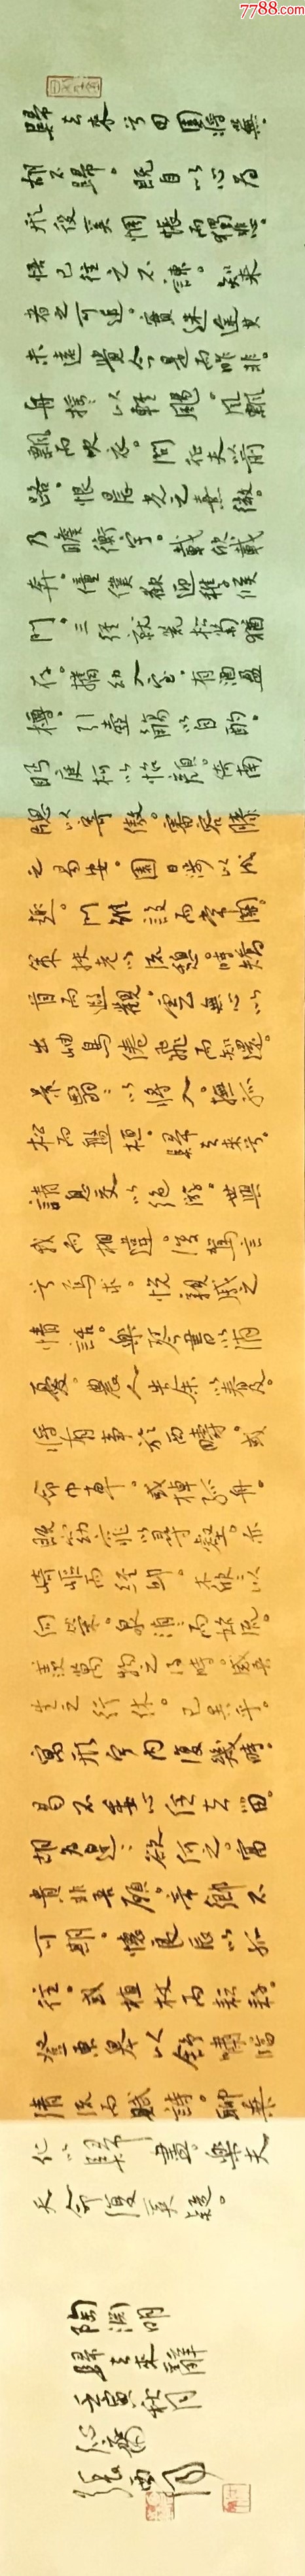 7788.com
歸去來兮田園將蕪
胡不歸。既自以心為
形役奚惆悵而獨悲。
悟已往之不諫。知來
者之可追。實迷途其
未遠覺今是而昨非。
舟搖以輕颺。風飄
飄而吹衣。問征夫以前
路。恨晨光之熹微。
乃瞻衡宇。載欣載
奔。僮僕歡迎稚候
門。三徑就荒松菊猶
存。攜幼入室。有酒盈
樽。引壺觴以自酌。
眄庭柯以怡顏。倚南
牕以寄傲。審容膝
之易安。園日涉以成
趣。門雖設而常關。
策扶老以流憩。時矯
首而遐觀。雲無心以
出岫鳥倦飛而知還。
景翳以將入。撫孤
松而盤桓。歸去來兮。
請息交以絕游。世與
我而相違。復駕言
兮焉求。悅親戚之
情話。樂琴書以消
憂。農人告余以春及。
將有事於西疇。或
命巾車。或棹孤舟。
既窈窕以尋壑。亦
崎嶇而經丘。木欣以
向榮。泉涓而始流。
羨萬物之得時。感吾
生之行休。已矣乎。
寓形宇內復幾時。
曷不委心任去留。
胡為遑欲何之。富
貴非吾願。帝鄉不
可期。懷良辰以孤
往。或植杖而耘耔。
登東皋以舒嘯臨
清流而賦詩。聊乘
化以歸盡。樂夫
天命復奚疑。
陶淵明
歸去來辭
壬寅秋月